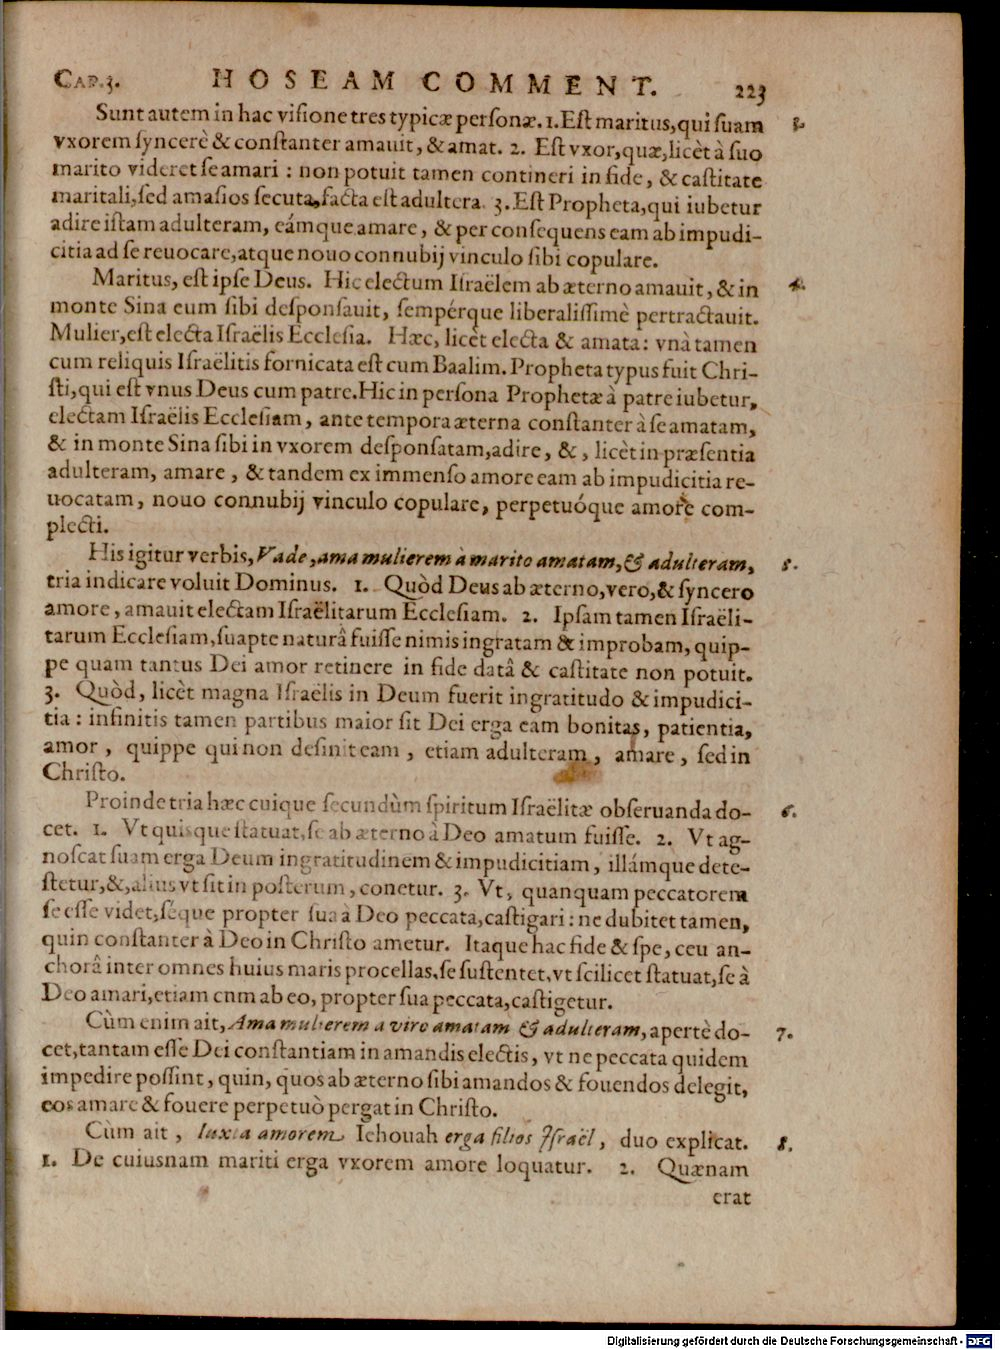 CAP. 3. HOSEAM COMMENT. 223
Sunt autem in hac visione tres typicæ personæ. 1. Est maritus, qui suam 3.
vxorem syncerè & constanter amauit, & amat. 2. Est vxor, quæ, licèt à suo
marito videret se amari : non potuit tamen contineri in fide, & castitate
maritali, sed amasios secuta, facta est adultera. 3. Est Propheta, qui iubetur
adire istam adulteram, eámque amare, & per consequens eam ab impudi-
citia ad se reuocare, atque nouo connubij vinculo sibi copulare.
Maritus, est ipse Deus. Hic electum Israëlem ab æterno amauit, & in 4.
monte Sina eum sibi desponsauit, sempérque liberalissimè pertractauit.
Mulier, est electa Israëlis Ecclesia. Hæc, licèt electa & amata : vnà tamen
cum reliquis Israëlitis fornicata est cum Baalim. Propheta typus fuit Chri-
sti, qui est vnus Deus cum patre. Hic in persona Prophetæ à patre iubetur,
electam Israëlis Ecclesiam, ante tempora æterna constanter à se amatam,
& in monte Sina sibi in vxorem desponsatam, adire, &, licèt in præsentia
adulteram, amare, & tandem ex immenso amore eam ab impudicitia re-
uocatam, nouo connubij vinculo copulare, perpetuóque amore com-
plecti.
His igitur verbis, Vade, ama mulierem à marito amatam, & adulteram, 5.
tria indicare voluit Dominus. 1. Quòd Deus ab æterno, vero, & syncero
amore, amauit electam Israëlitarum Ecclesiam. 2. Ipsam tamen Israëli-
tarum Ecclesiam, suapte naturâ fuisse nimis ingratam & improbam, quip-
pe quam tantus Dei amor retinere in fide datâ & castitate non potuit.
3. Quòd, licèt magna Israëlis in Deum fuerit ingratitudo & impudici-
tia : infinitis tamen partibus maior sit Dei erga eam bonitas, patientia,
amor, quippe qui non desinit eam, etiam adulteram, amare, sed in
Christo.
Proinde tria hæc cuique secundùm spiritum Israëlitæ obseruanda do- 6.
cet. 1. Vt quisque statuat, se ab æterno à Deo amatum fuisse. 2. Vt ag-
noscat suam erga Deum ingratitudinem & impudicitiam, illámque dete-
stetur, &, alius vt sit in posterum, conetur. 3. Vt, quanquam peccatorem
se esse videt, séque propter sua à Deo peccata, castigari : ne dubitet tamen,
quin constanter à Deo in Christo ametur. Itaque hac fide & spe, ceu an-
chorâ inter omnes huius maris procellas, se sustentet, vt scilicet statuat, se à
Deo amari, etiam cnm ab eo, propter sua peccata, castigetur.
Cùm enim ait, Ama mulierem a viro amatam & adulteram, apertè do- 7.
cet, tantam esse Dei constantiam in amandis electis, vt ne peccata quidem
impedire possint, quin, quos ab æterno sibi amandos & fouendos delegit,
eos amare & fouere perpetuò pergat in Christo.
Cùm ait, Iuxta amorem Iehouah erga filios Israël, duo explicat. 8.
1. De cuiusnam mariti erga vxorem amore loquatur. 2. Quænam
erat
Digitalisierung gefördert durch die Deutsche Forschungsgemeinschaft - DFG